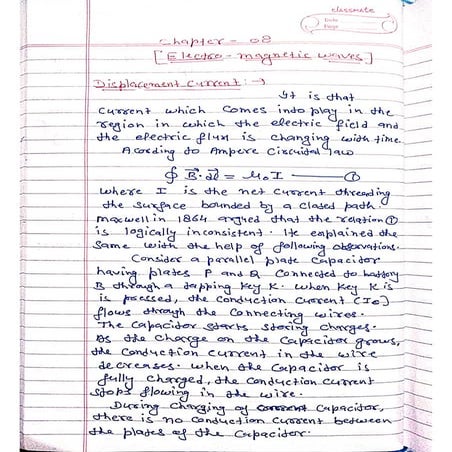 classmate
Date
Page
Chapter - 08
[Electro-magnetic waves]
Displacement Current :→
It is that
current which comes into play in the
region in which the electric field and
the electric flux is changing with time.
Acording to Ampere Circuital law
∮ B⃗.d⃗l = μ₀I ——— ①
where I is the net current threading
the surface bounded by a closed path.
maxwell in 1864 argued that the relation ①
is logically inconsistent. He explained the
same with the help of following observations.
Consider a parallel plate capacitor
having plates P and Q connected to battery
B through a tapping key K. when key K is
is pressed, the conduction current (I₀)
flows through the connecting wires.
The capacitor starts storing charges.
As the charge on the capacitor grows,
the conduction current in the wire
decreases. when the capacitor is
fully charged, the conduction current
stops flowing in the wire.
During charging of capacitor,
there is no conduction current between
the plates of the capacitor.